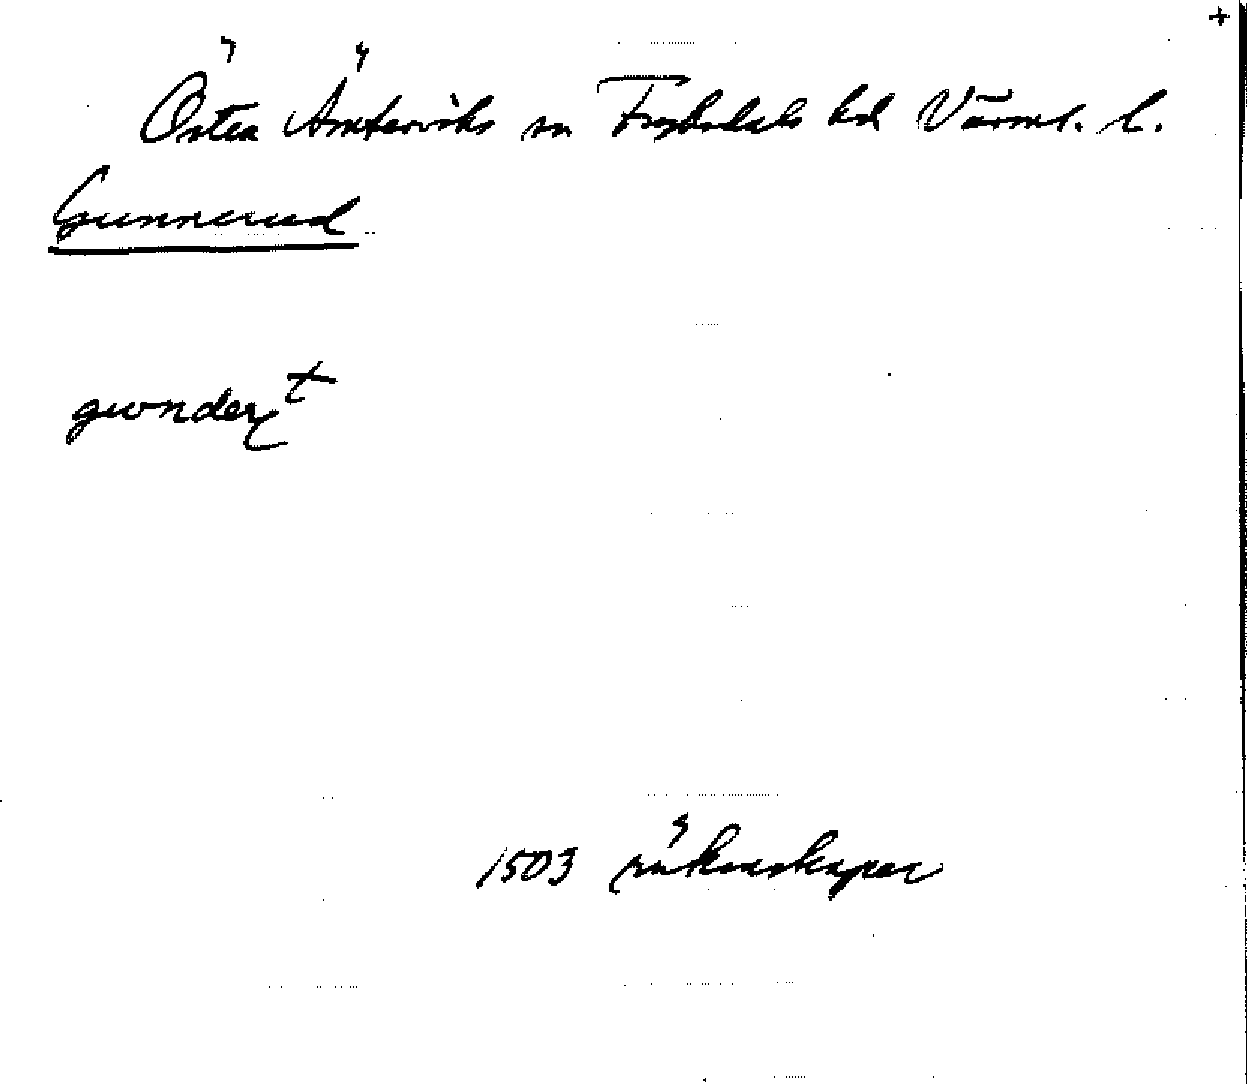 +
Östra Ämterviks sn Fryksdals hd Värml. l.
Gunnerud
gwnderx +
1503 räkenskaper